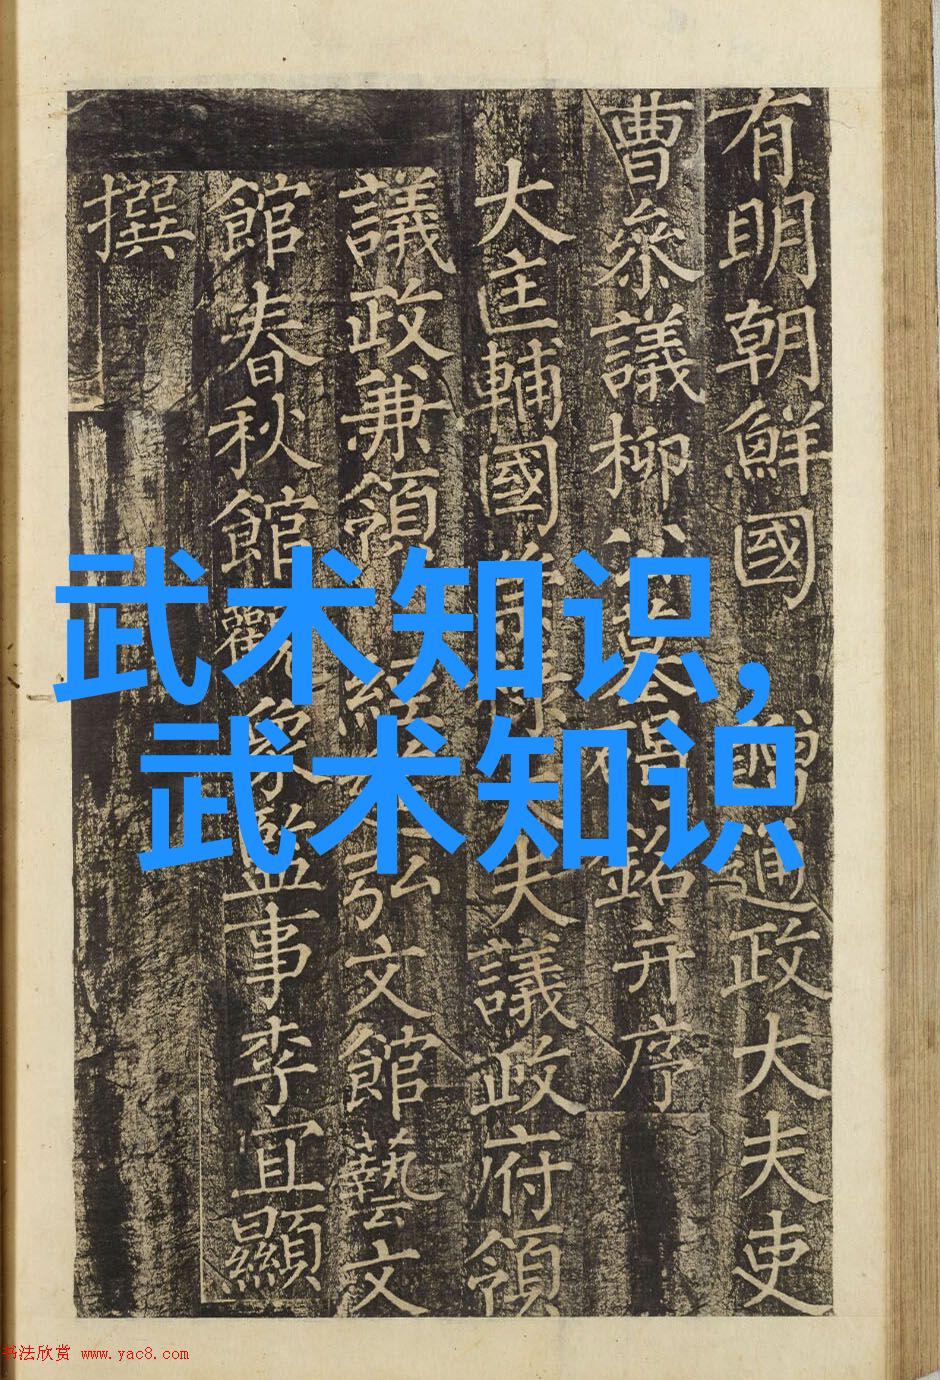 有明朝鮮國 贈通政大夫吏
曹叅議柳公墓碣銘并序
大匡輔國崇祿大夫議政府領
議政兼領經筵弘文館藝文
館春秋館觀象監事李宜顯
撰
武术知识,
武术知识
书法欣赏 www.yac8.com